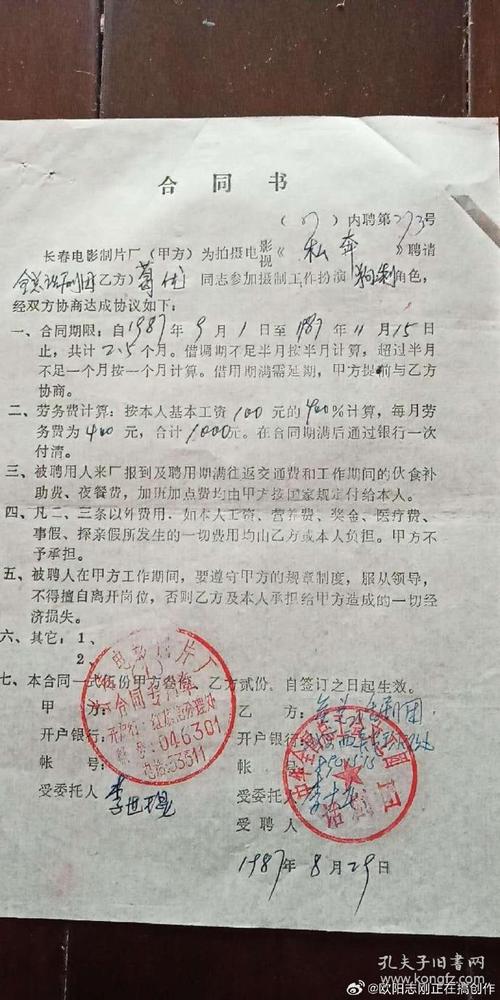 合同书
(87)内聘第273号
长春电影制片厂(甲方)为拍摄电影视《私奔》聘请
全总话剧团(乙方)葛优同志参加摄制工作扮演狗剩角色,
经双方协商达成协议如下:
一、合同期限:自1987年9月1日至1987年11月15日
止,共计2.5个月。借调期不足半月按半月计算,超过半月
不足一个月按一个月计算。借用期满需延期,甲方提前与乙方
协商。
二、劳务费计算:按本人基本工资100元的400%计算,每月劳
务费为400元,合计1000元。在合同期满后通过银行一次
付清。
三、被聘用人来厂报到及聘用期满往返交通费和工作期间的伙食补
助费、夜餐费,加班加点费均由甲方按国家规定付给本人。
四、凡二、三条以外费用,如本人工资、营养费、奖金、医疗费、
事假、探亲假所发生的一切费用均由乙方或本人负担。甲方不
予承担。
五、被聘人在甲方工作期间,要遵守甲方的规章制度,服从领导,
不得擅自离开岗位,否则乙方及本人承担给甲方造成的一切经
济损失。
六、其它:1、
2、
七、本合同一式伍份甲方叁份,乙方贰份,自签订之日起生效。
甲方: 乙方:
开户银行: 开户银行:
帐号: 帐号:
受委托人 李世 受委托人
受聘人
1987年8月29日
电影制片厂
合同专用章
046301
电话:53311
话剧团
孔夫子旧书网
@欧阳志刚正在搞创作